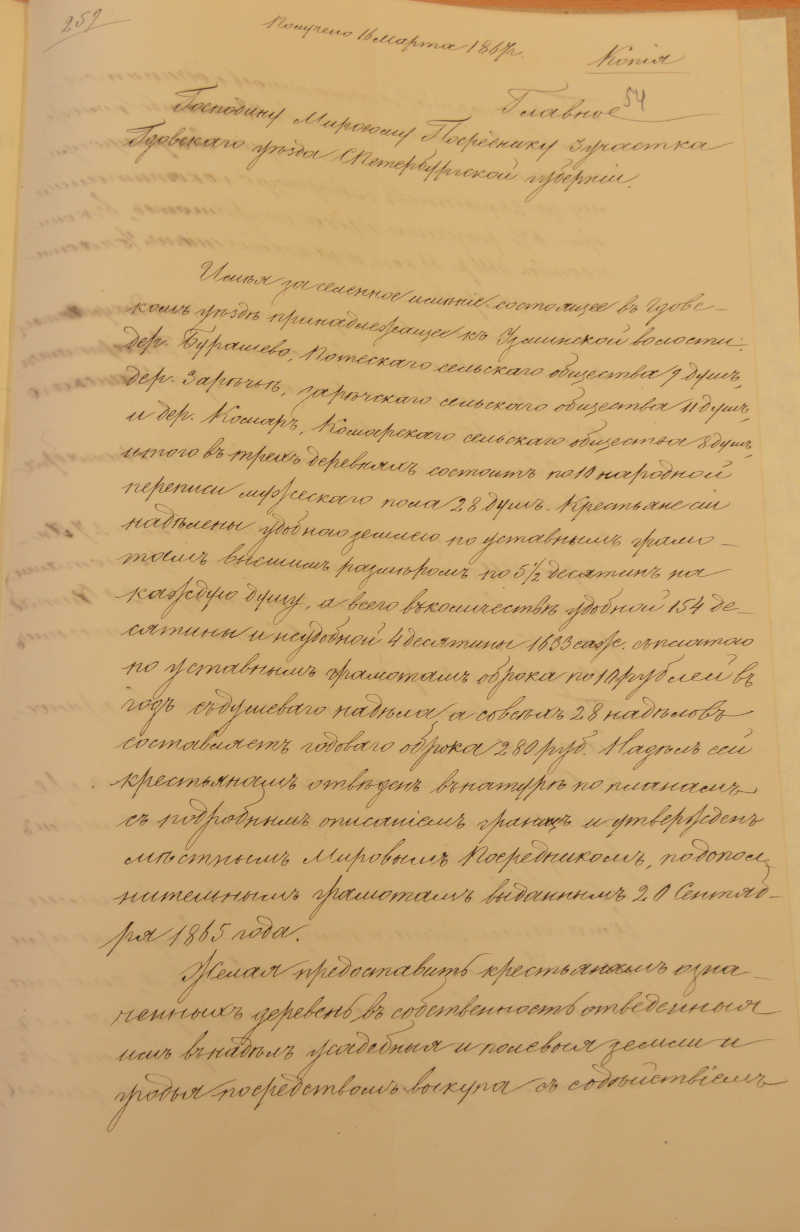 252
Получено 16 Марта 1867 г.
Копія
54
Главное
Господину Мировому Посреднику 3 участка
Гдовскаго уѣзда СПетербургской губерніи.
Имѣя заселенное имѣніе состоящее въ Гдовс-
комъ уѣздѣ принадлежащее къ Узьминской волости:
дер. Бурашево, Потескаго сельскаго общества 9 душъ,
дер. Зарѣчье, зарѣчскаго сельскаго общества 11 душъ,
и дер. Комаръ, Комарскаго сельскаго общества 8 душъ,
итого въ трехъ деревняхъ состоитъ по 10 народной
переписи мужескаго пола 28 душъ. Крестьяне сіи
надѣлены удобною землею по уставнымъ грамо-
тамъ высшимъ размѣромъ по 5½ десятинъ на
каждую душу, а всего въ количествѣ удобной 154 де-
сятины и неудобной 4 десятины 1633 саж. съ платою
по уставнымъ грамотамъ оброка по 10 рублей въ
годъ съ душеваго надѣла, а совсѣхъ 28 надѣловъ
составляетъ годоваго оброка 280 руб. Надѣлъ сей
крестьянамъ отведенъ въ натурѣ по планамъ
съ подробнымъ описаніемъ границъ и утвержденъ
мѣстнымъ Мировымъ Посредникомъ, по допол-
нительнымъ грамотамъ выданнымъ 20 Сентяб-
ря 1865 года.
Желая предоставить крестьянамъ озна-
ченныхъ деревень въ собственность отведенныя
имъ въ надѣлъ усадебныя и полевыя земли и
угодья посредствомъ выкупа съ содѣйствіемъ